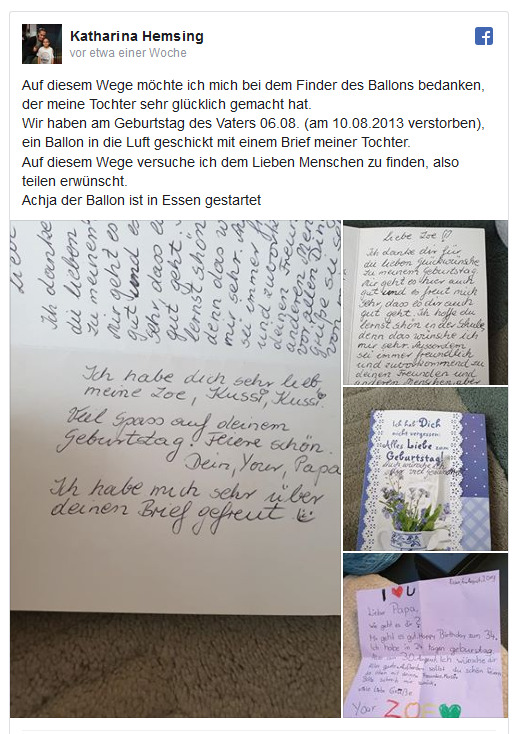 Katharina Hemsing
vor etwa einer Woche
Auf diesem Wege möchte ich mich bei dem Finder des Ballons bedanken,
der meine Tochter sehr glücklich gemacht hat.
Wir haben am Geburtstag des Vaters 06.08. (am 10.08.2013 verstorben),
ein Ballon in die Luft geschickt mit einem Brief meiner Tochter.
Auf diesem Wege versuche ich dem Lieben Menschen zu finden, also
teilen erwünscht.
Achja der Ballon ist in Essen gestartet
Liebe
Ich danke
die lieben
zu meinem
Mir geht es
gut und es
sehr, dass es
gut geht.
lernst schön
denn das wü
mir sehr.
sei immer fr
und zuvorko
deinen Freun
anderen Men
vor allen Din
Grüße
von
Ich habe dich sehr lieb
meine Zoe, Kussi, Kussi.
Viel Spass auf deinem
Geburtstag. Feiere schön.
Dein, Your, Papa
Ich habe mich sehr über
deinen Brief gefreut
Liebe Zoe
Ich danke dir für
die lieben Glückwünsche
zu meinem Geburtstag.
Mir geht es hier auch
gut und es freut mich
sehr, dass es dir auch
gut geht. Ich hoffe du
lernst schön in der Schule,
denn das wünsche ich
mir sehr. Ausserdem
sei immer freundlich
und zuvorkommend zu
deinen Freunden und
anderen Menschen, aber
Ich hab Dich
nicht vergessen:
Alles Liebe zum
Geburtstag!
I U
Lieber Papa,
Wie geht es dir?
Mir geht es gut. Happy Birthday zum 34.
Ich habe in 24 tagen geburstag
30 August. Ich wünsche dir
Liebe Grüße
Your ZOE